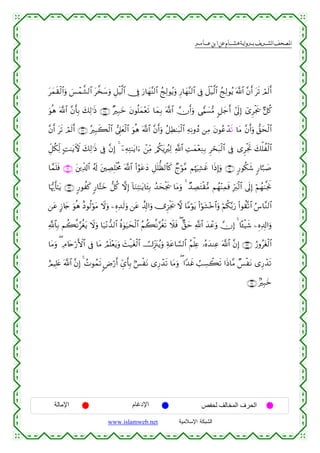 المصحف الشريف برواية هشام عن ابن عامر
أَلَمْ تَرَ أَنَّ ٱللَّهَ يُولِجُ ٱلَّيْلَ فِى ٱلنَّهَارِ وَيُولِجُ ٱلنَّهَارَ فِى ٱلَّيْلِ وَسَخَّرَ ٱلشَّمْسَ وَٱلْقَمَرَ
كُلٌّ يَجْرِىٓ إِلَىٰٓ أَجَلٍ مُّسَمًّى وَأَنَّ ٱللَّهَ بِمَا تَعْمَلُونَ خَبِيرٌ ذَٰلِكَ بِأَنَّ ٱللَّهَ هُوَ
ٱلْحَقُّ وَأَنَّ مَا تَدْعُونَ مِن دُونِهِ ٱلْبَٰطِلُ وَأَنَّ ٱللَّهَ هُوَ ٱلْعَلِىُّ ٱلْكَبِيرُ أَلَمْ تَرَ أَنَّ
ٱلْفُلْكَ تَجْرِى فِى ٱلْبَحْرِ بِنِعْمَتِ ٱللَّهِ لِيُرِيَكُم مِّنْ ءَايَٰتِهِۦٓ ۚ إِنَّ فِى ذَٰلِكَ لَءَايَٰتٍ لِّكُلِّ
صَبَّارٍ شَكُورٍ وَإِذَا غَشِيَهُم مَّوْجٌ كَٱلظُّلَلِ دَعَوُا۟ ٱللَّهَ مُخْلِصِينَ لَهُ ٱلدِّينَ فَلَمَّا
نَجَّىٰهُمْ إِلَى ٱلْبَرِّ فَمِنْهُم مُّقْتَصِدٌ ۚ وَمَا يَجْحَدُ بِـَٔايَٰتِنَآ إِلَّا كُلُّ خَتَّارٍ كَفُورٍ يَٰٓأَيُّهَا
ٱلنَّاسُ ٱتَّقُوا۟ رَبَّكُمْ وَٱخْشَوْا۟ يَوْمًا لَّا يَجْزِى وَالِدٌ عَن وَلَدِهِۦ وَلَا مَوْلُودٌ هُوَ جَازٍ عَن
وَالِدِهِۦ شَيْـًٔا ۚ إِنَّ وَعْدَ ٱللَّهِ حَقٌّ ۖ فَلَا تَغُرَّنَّكُمُ ٱلْحَيَوٰةُ ٱلدُّنْيَا وَلَا يَغُرَّنَّكُم بِٱللَّهِ
ٱلْغَرُورُ إِنَّ ٱللَّهَ عِندَهُۥ عِلْمُ ٱلسَّاعَةِ وَيُنَزِّلُ ٱلْغَيْثَ وَيَعْلَمُ مَا فِى ٱلْأَرْحَامِ ۖ وَمَا
تَدْرِى نَفْسٌ مَّاذَا تَكْسِبُ غَدًا ۖ وَمَا تَدْرِى نَفْسٌۢ بِأَىِّ أَرْضٍ تَمُوتُ ۚ إِنَّ ٱللَّهَ عَلِيمٌ
خَبِيرٌۢ
الحرف المخالف لحفص الإدغام الإمالة
الشبكة الإسلامية www.islamweb.net